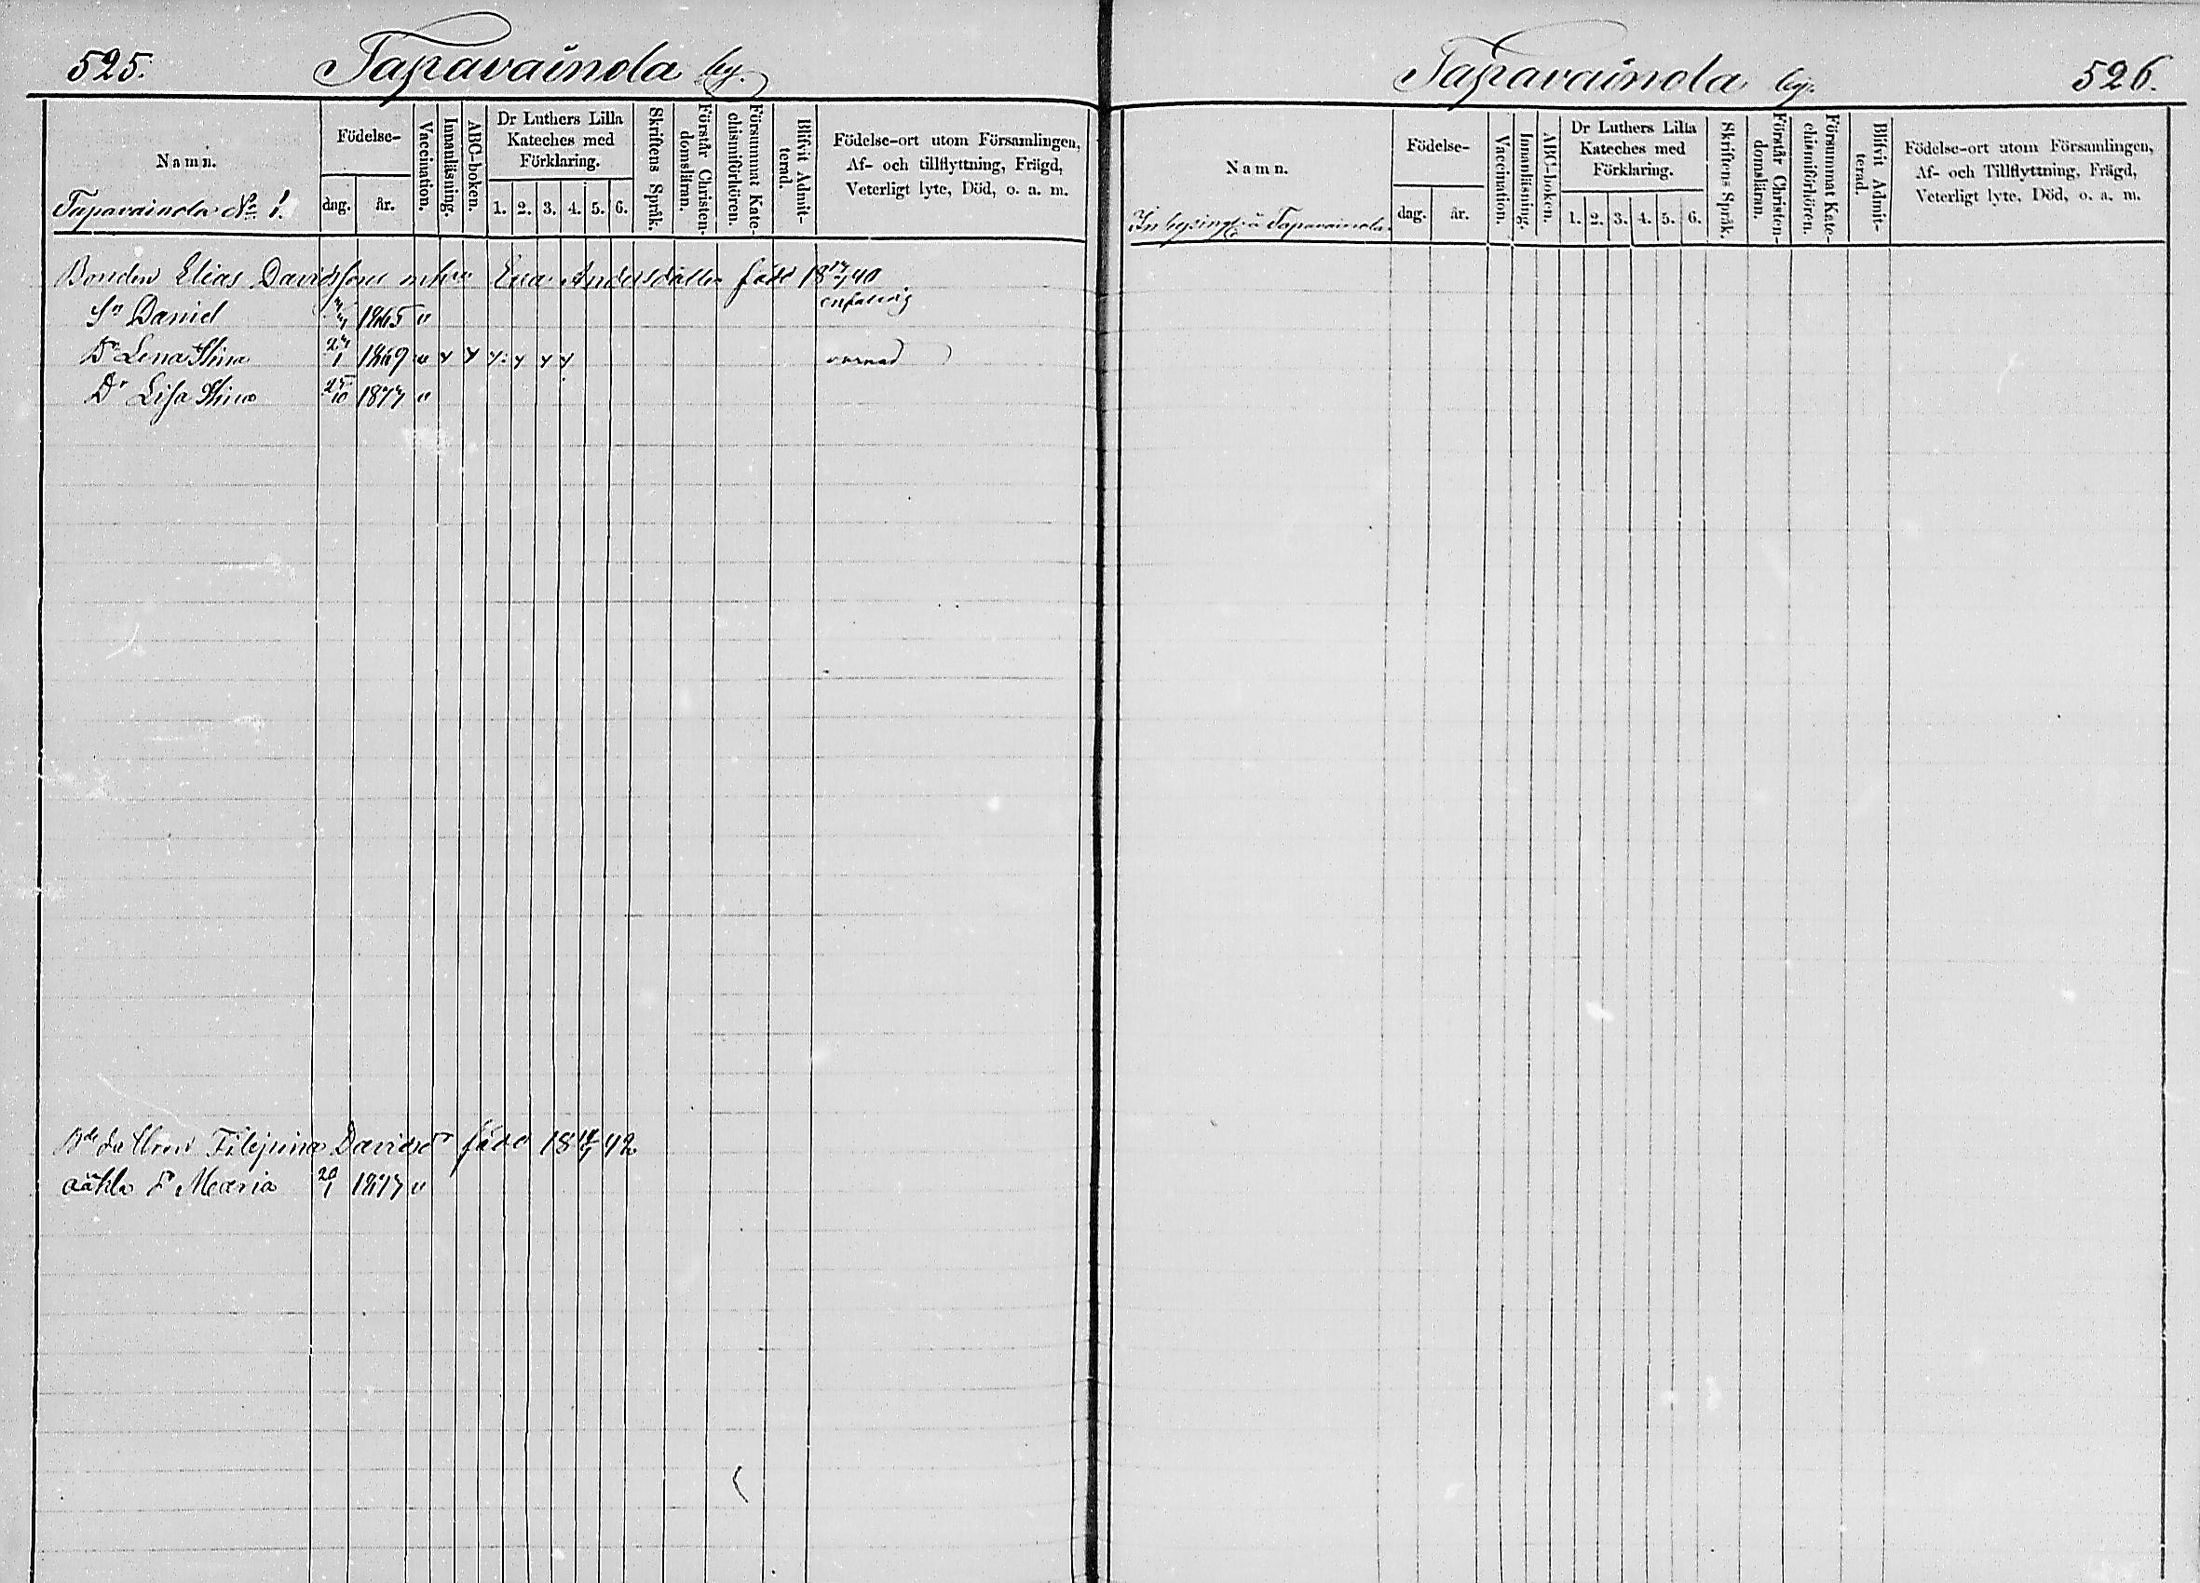 525.
Tapavainola by.
Namn.
Födelse-
dag. år.
Vaccination.
Innanläsning.
ABC-boken.
Dr Luthers Lilla Kateches med Förklaring.
1. 2. 3. 4. 5. 6.
Skriftens Språk.
Förstår Christen-domsläran.
Försummat Kate-chismiförhören.
Blifvit Admit-terad.
Födelse-ort utom Församlingen,
Af- och tillflyttning, Frägd,
Veterligt lyte, Död, o. a. m.
Tapavainola No 1.
Bonden Elias Davidssons Eva Andersdotter född 18 40
Sn Daniel 1865 "
Dr Lena Stina 1869 "
Dr Lisa Stina 25/10 1877 "
Davidsdr född 18 42
Dr Maria 20/1 1877 "
Tapavainola by.
526.
Namn.
Födelse-
dag. år.
Vaccination.
Innanläsning.
ABC-boken.
Dr Luthers Lilla Kateches med Förklaring.
1. 2. 3. 4. 5. 6.
Skriftens Språk.
Förstår Christen-domsläran.
Försummat Kate-chismiförhören.
Blifvit Admit-terad.
Födelse-ort utom Församlingen,
Af- och Tillflyttning, Frägd,
Veterligt lyte, Död, o. a. m.
Inhysingar å Tapavainola.